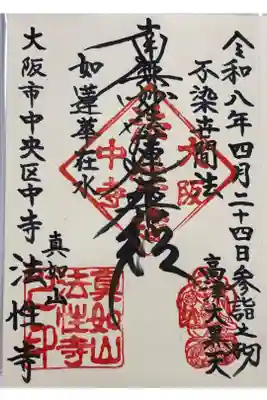 令和八年四月二十四日参詣之砌
不染世間法
高津大黒天
南無妙法蓮華経
大阪
中寺
如蓮華在水
真如山
大阪市中央区中寺 法性寺
真如山
法性寺